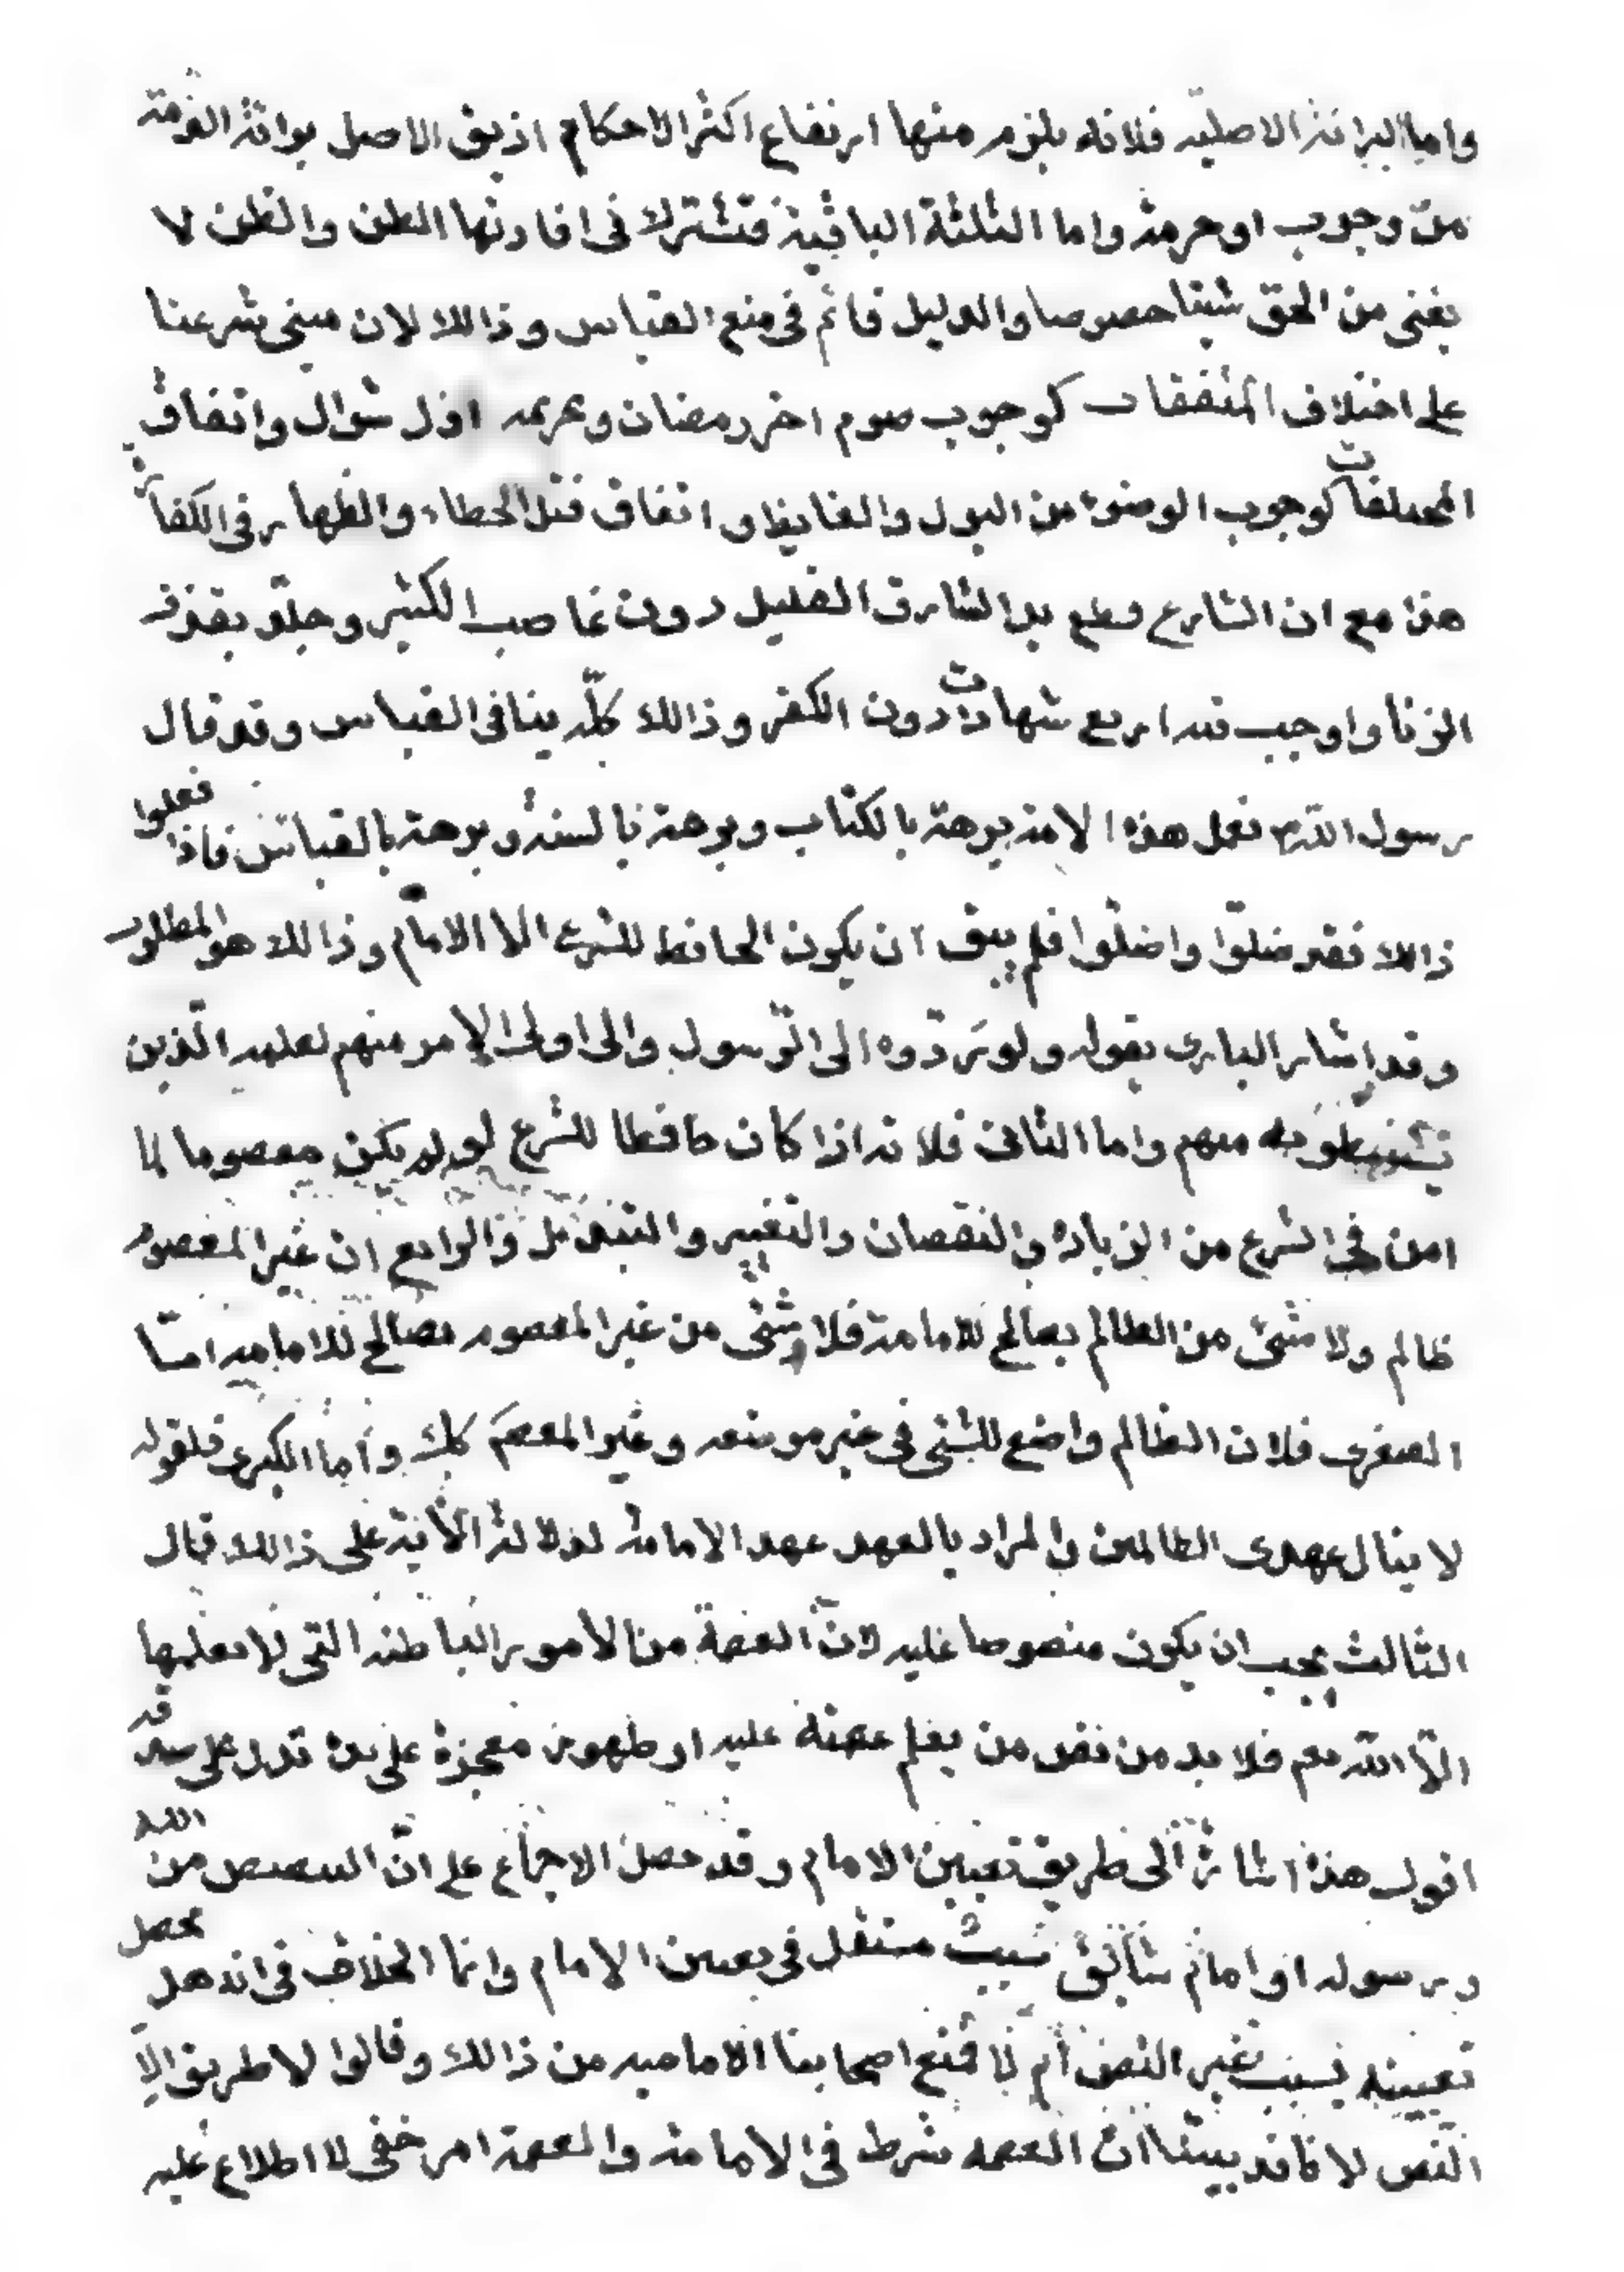 واما البرائة الاصلية فلانه يلزم منها ارتفاع اكثر الاحكام اذ يق الاصل برائة الذمة
من وجوب او حرمة واما الثلثة الباقية فتشترك فى افادتها الظن والظن لا
يغنى من الحق شيئا خصوصا والدليل قائم فى منع القياس وذالك لان مبنى شرعنا
على اختلاف المتفقات كوجوب صوم اخر رمضان وتحريمه اول شوال واتفاق
المختلفات كوجوب الوضوء من البول والغايط واتفاق قتل الخطاء والظهار فى الكفارة
هذا مع ان الشارع قطع يد السارق القليل دون غاصب الكثير وجلد بقذف
الزنا واوجب فيه اربع شهادات دون الكفر وذالك كله ينافى القياس وقد قال
رسول الله ص تعمل هذه الامة برهة بالكتاب وبرهة بالسنة وبرهة بالقياس فاذا فعلوا
ذالك فقد ضلوا واضلوا فلم يبق ان يكون الحافظ للشرع الا الامام وذالك هو المطلوب
وقد اشار البارى بقوله ولو ردوه الى الرسول والى اولى الامر منهم لعلمه الذين
يستنبطونه منهم واما الثانى فلانه اذا كان حافظا للشرع لو لم يكن معصوما لما
امن فى الشرع من الزيادة والنقصان والتغيير والتبديل والرابع ان غير المعصوم
ظالم ولا شئ من الظالم بصالح للامامة فلا شئ من غير المعصوم بصالح للامامة اما
الصغرى فلان الظالم واضع للشئ فى غير موضعه وغير المعصم كك واما الكبرى فلقوله
لا ينال عهدى الظالمين والمراد بالعهد عهد الامامة لدلالة الاية على ذالك قال
الثالث يجب ان يكون منصوصا عليه لان العصمة من الامور الباطنة التى لا يعلمها
الا الله تعم فلا بد من نص من يعلم عصمته عليه او ظهور معجزة على يده تدل على صدقه
اقول هذه اشارة الى طريق تعيين الامام وقد حصل الاجماع على ان التنصيص من الله
ورسوله او امام سابق سبب مستقل فى تعيين الامام وانما الخلاف فى انه هل يحصل
تعيينه بسبب غير النص ام لا فمنع اصحابنا الامامية من ذالك وقالوا لا طريق الا
النص لانا قد بينا ان العصمة شرط فى الامامة والعصمة امر خفى لا اطلاع عليه